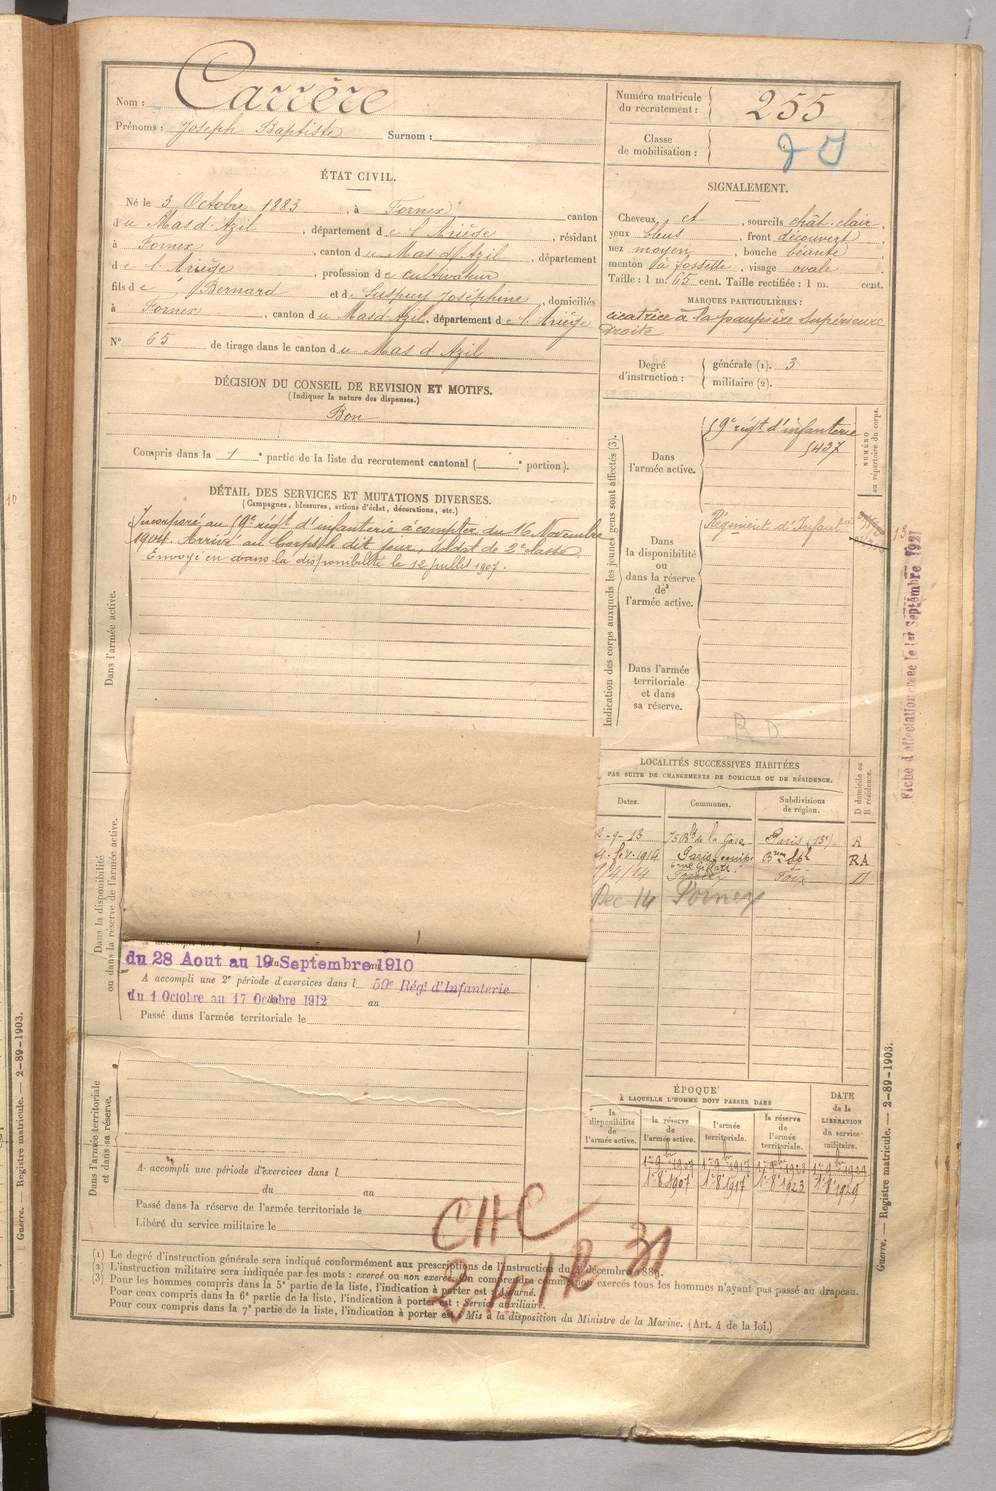 Nom : Carrère
Prénoms : Joseph Baptiste Surnom :
Numéro matricule du recrutement : 255
Classe de mobilisation :
ÉTAT CIVIL.
Né le 3 Octobre 1883, à Fornex, canton
du Mas d'Azil, département de l'Ariège, résidant
à Fornex, canton du Mas d'Azil, département
de l'Ariège, profession de cultivateur
fils de Bernard et de Suspuy Joséphine, domiciliés
à Fornex, canton du Mas d'Azil, département de l'Ariège
N° 65 de tirage dans le canton du Mas d'Azil
SIGNALEMENT.
Cheveux et, sourcils chât-clair,
yeux bleus, front découvert,
nez moyen, bouche béante,
menton à fossette, visage ovale
Taille : 1 m. 65 cent. Taille rectifiée : 1 m. cent.
MARQUES PARTICULIÈRES :
cicatrice à la paupière supérieure
droite
Degré d'instruction :
générale (1). 3
militaire (2).
DÉCISION DU CONSEIL DE REVISION ET MOTIFS.
(Indiquer la nature des dispenses.)
Bon
Compris dans la 1e partie de la liste du recrutement cantonal ( e portion).
DÉTAIL DES SERVICES ET MUTATIONS DIVERSES.
(Campagnes, blessures, actions d'éclat, décorations, etc.)
Incorporé au 59e régt d'infanterie à compter du 16 Novembre
1904. Arrivé au Corps le dit jour, soldat de 2e classe.
Envoyé en dans la disponibilité le 12 juillet 1907.
Dans l'armée active.
Dans la disponibilité ou dans la réserve de l'armée active.
du 28 Aout au 19 Septembre 1910
A accompli une 2e période d'exercices dans l 59e Rég. d'Infanterie
du 1 Octobre au 17 Octobre 1912 au
Passé dans l'armée territoriale le
Dans l'armée territoriale et dans sa réserve.
A accompli une période d'exercices dans l
du au
Passé dans la réserve de l'armée territoriale le
Libéré du service militaire le
Indication des corps auxquels les jeunes gens sont affectés (3).
NUMÉRO au répertoire du corps.
Dans l'armée active.
59e régt d'infanterie
5427
Dans la disponibilité ou dans la réserve de l'armée active.
Régiment d'Infanterie
Dans l'armée territoriale et dans sa réserve.
R D
Fiche d'affectation créée le 1er Septembre 1927
LOCALITÉS SUCCESSIVES HABITÉES
PAR SUITE DE CHANGEMENTS DE DOMICILE OU DE RÉSIDENCE.
Dates. Communes. Subdivisions de région. D domicile ou R résidence.
-9-13 75 Bd de la Gare Paris (13e) R
fév-1914 Paris RA
/4/14 Fornex Foix D
Dec 14 Fornex
ÉPOQUE
À LAQUELLE L'HOMME DOIT PASSER DANS
la disponibilité de l'armée active.
la réserve de l'armée active.
l'armée territoriale.
la réserve de l'armée territoriale.
DATE de la LIBÉRATION du service militaire.
1er 9bre 1907 1er 9bre 1917 1er 9bre 1923 1er 9bre 1929
1er 8bre 1907 1er 8bre 1917 1er 8bre 1923 1er 8bre 1929
CHC
(1) Le degré d'instruction générale sera indiqué conformément aux prescriptions de l'instruction du 4 décembre 1889.
(2) L'instruction militaire sera indiquée par les mots : exercé ou non exercé. On comprendra comme non exercés tous les hommes n'ayant pas passé au drapeau.
(3) Pour les hommes compris dans la 5e partie de la liste, l'indication à porter est : Ajourné.
Pour ceux compris dans la 6e partie de la liste, l'indication à porter est : Service auxiliaire.
Pour ceux compris dans la 7e partie de la liste, l'indication à porter est : Mis à la disposition du Ministre de la Marine. (Art. 4 de la loi.)
Guerre. Registre matricule. — 2-89-1903.
Guerre. Registre matricule. — 2-89-1903.